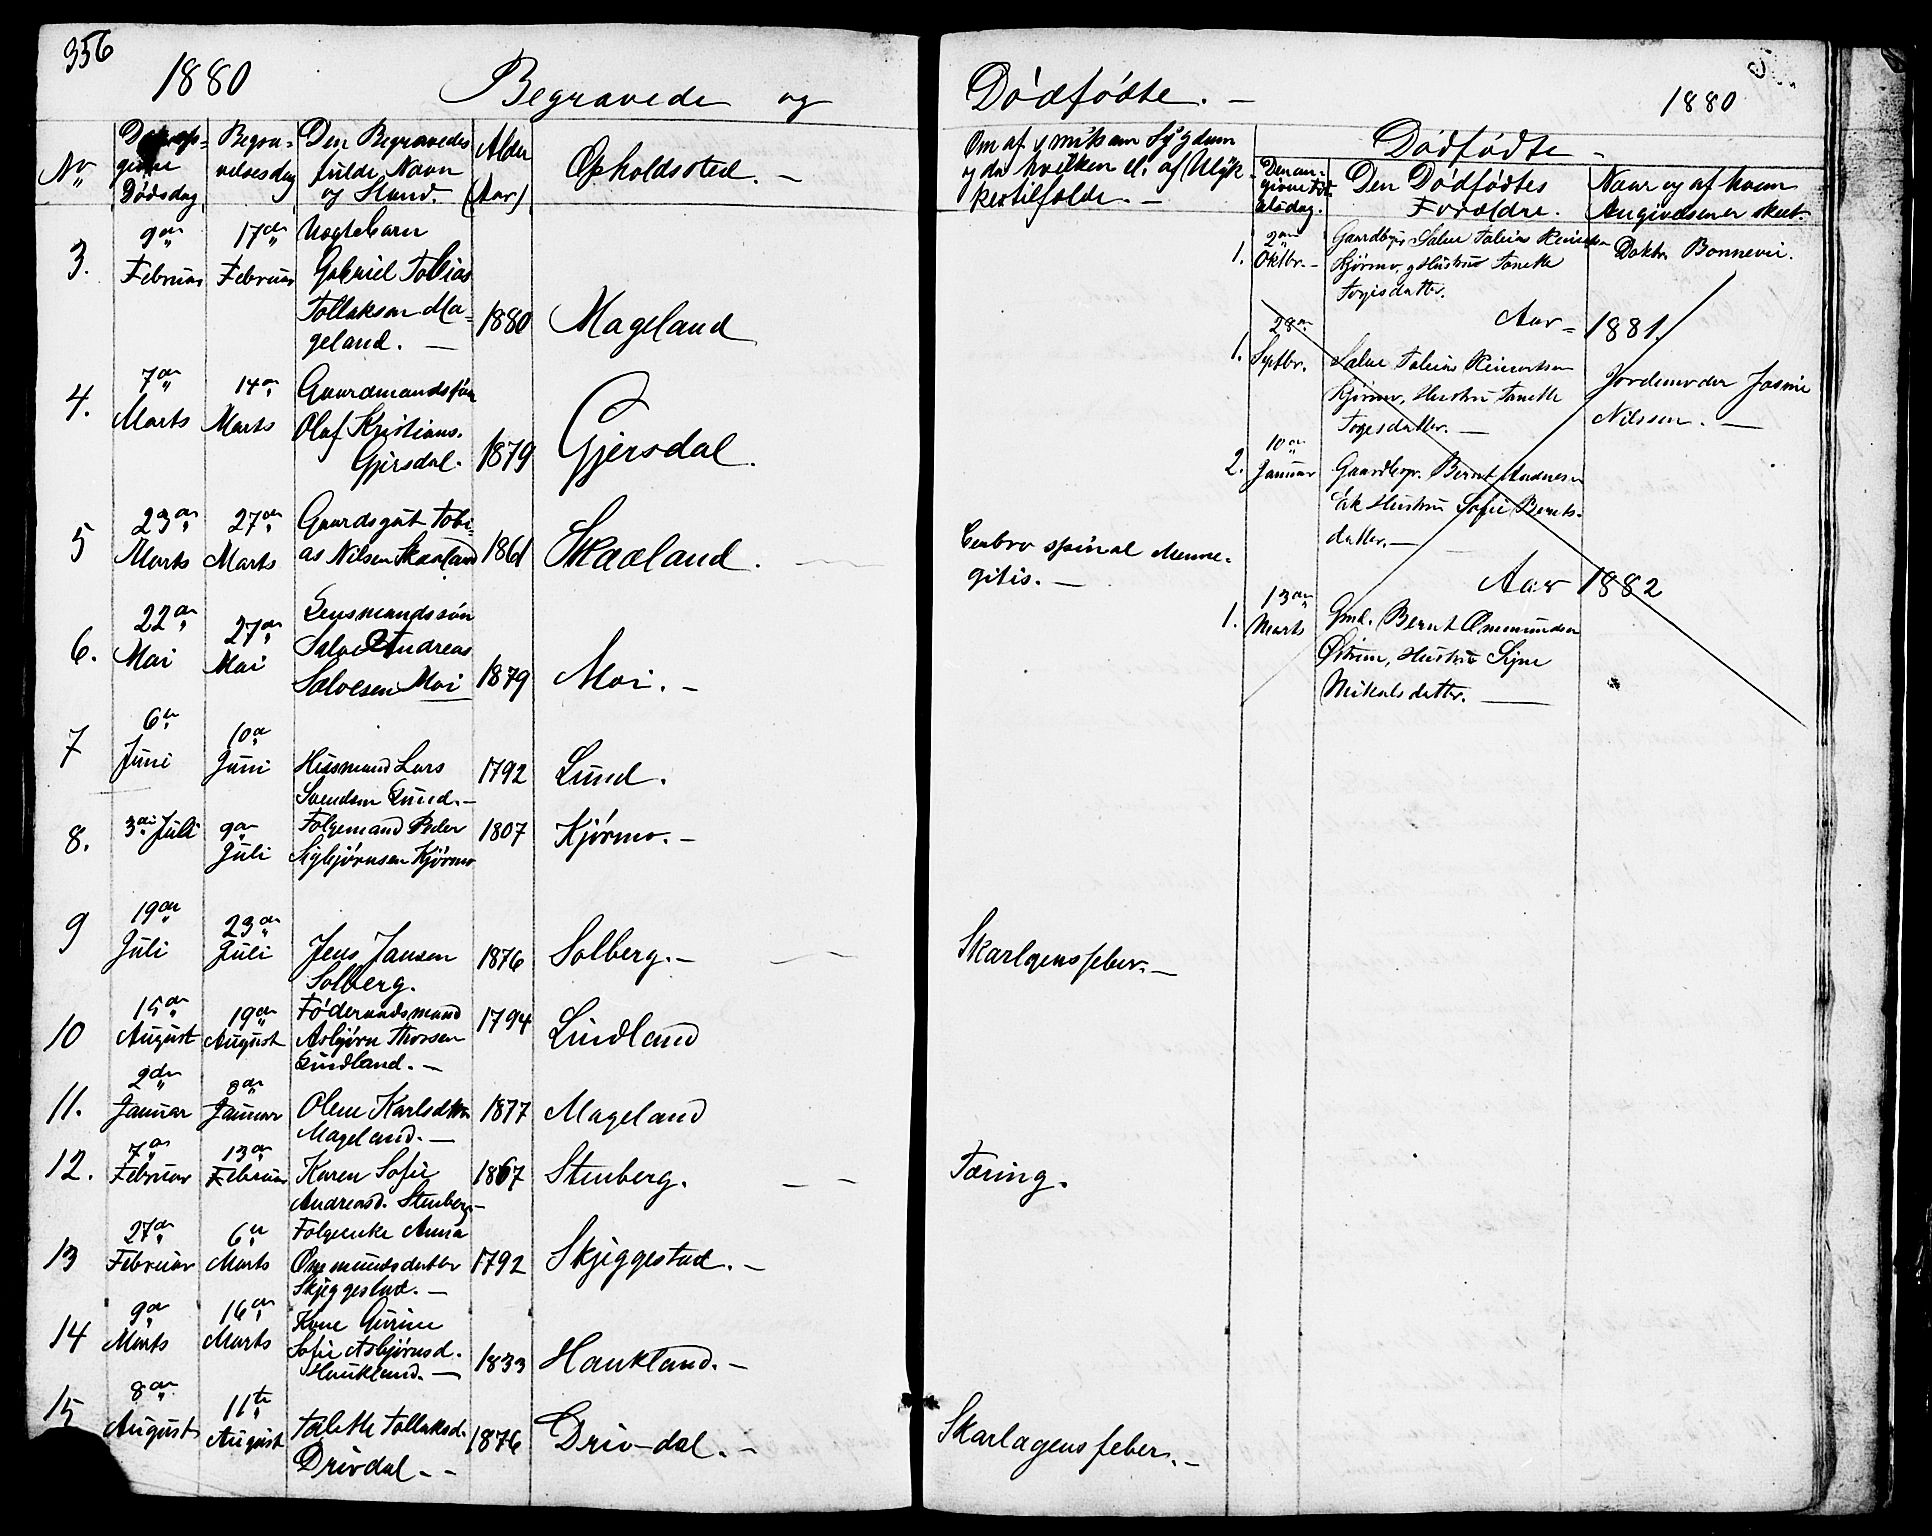 356
1880 Begravede og Dødfødte. – 1880
No Den opgivne Dødsdag
Begravelsesdag
Den Begravedes fulde Navn og Stand.
Alder (Aar)
Opholdssted. –
Om af smitsom Sygdom
og da hvilken el. af Ulyk-
kestilfælde. –
Dødfødte –
Den Dødfødtes
Forældre.
Naar og af hvem
Angivelsen er skeet.
3. 9de Februar 17de Februar
Gabriel Tobias
Tollaksen Ma-
geland. – 1880 Mageland
4. 7de Marts 14de Marts Gaardmandssøn
Olaf Kristians.
Gjersdal. 1879 Gjersdal.
5 23de Marts 27de Marts Gaardsgut Tobi-
as Nilsen Skaaland 1861 Skaaland.
Cerebro spinal Menne-
gitis. –
6. 22de Mai 27de Mai Lensmandssøn
Salve Andreas
Salvesen Moi 1879 Moi. –
7 6te Juni 10de Juni Husmand Lars
Svendsen Lund. – 1792 Lund.
8. 3die Juli 9de Juli Følgemand Peder
Sigbjørnsen Kjørmo 1807 Kjørmo. –
9 19de Juli 23de Juli Jens Jansen
Solberg. 1876 Solberg. – Skarlgensfeber. –
10 15de August 19de August Føderaadsmand
Asbjørn Thorsen
Lindland. – 1794 Lindland
11. 2den Januar 8de Januar Olene Karlsdtr.
Mageland. – 1877 Mageland
12. 7de Februar 13de Februar Karen Sofie
Andreasd. Stenberg – 1867 Stenberg. Tæring.
13 27de Februar 6te Marts Følgeenke Anna
Omundsdatter
Skjeggestad. – 1792 Skjeggestad. –
14 9de Marts 16de Marts Kone Gurine
Sofie Asbjørnsd.
Haukland. – 1833 Haukland. –
15 8de August 11te August Talette Tollaksd.
Drivdal – – 1876 Driv-dal. – Skarlagensfeber. –
1. 2den Oktbr. – Gaardbr. Salve Tobias
Kjørmo, og Hustru Tanette
Doktor Bonnevie.
Aar – 1881.
1. 28de Septbr. Salve Tobias
Kjørmo, Hustru Tanette
Jordemoder Josine
Nilssen. –
2. 10de Januar Gaardbr. Bernt Andresen
Eik Hustru Sofie Bernts-
datter. –
Aar 1882
1. 13de Marts Gmd. Bernt Ommundsen
Hustru Signe
Mikalsdatter. –